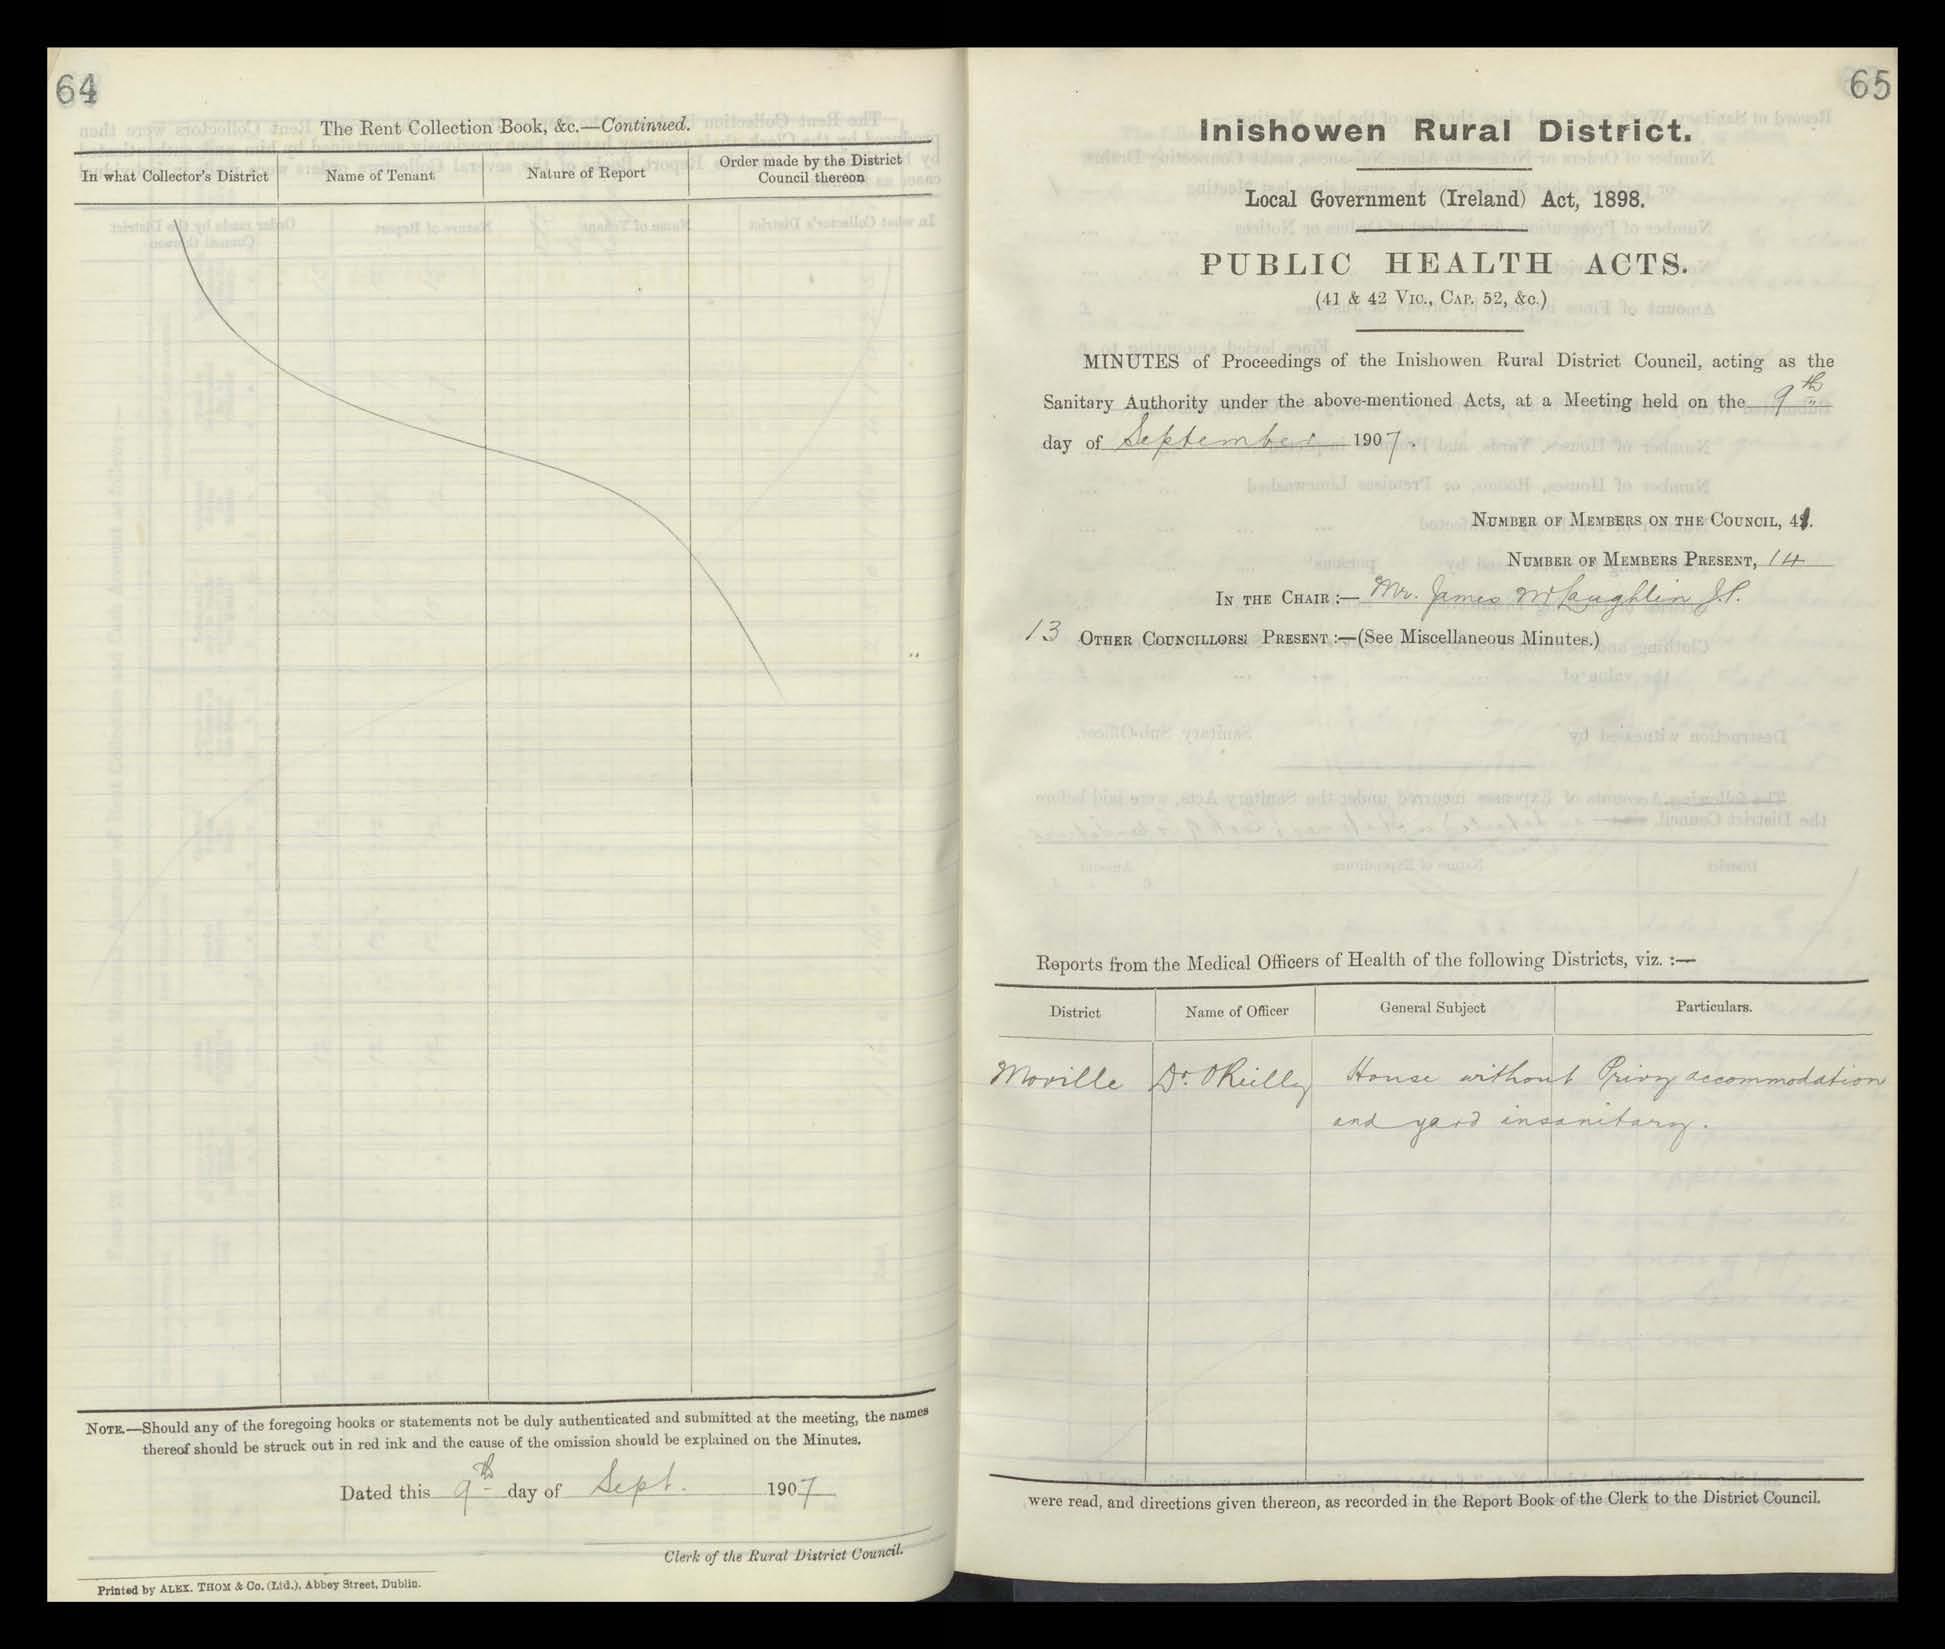 64
The Rent Collection Book, &c.—Continued.
In what Collector's District
Name of Tenant
Nature of Report
Order made by the District
Council thereon
NOTE.—Should any of the foregoing books or statements not be duly authenticated and submitted at the meeting, the names
thereof should be struck out in red ink and the cause of the omission should be explained on the Minutes.
Dated this 9th day of Sept. 1907
Clerk of the Rural District Council.
Printed by ALEX. THOM & Co. (Ltd.), Abbey Street, Dublin.
65
Inishowen Rural District.
Local Government (Ireland) Act, 1898.
PUBLIC HEALTH ACTS.
(41 & 42 Vic., Cap. 52, &c.)
MINUTES of Proceedings of the Inishowen Rural District Council, acting as the
Sanitary Authority under the above-mentioned Acts, at a Meeting held on the 9th
day of September 1907.
NUMBER OF MEMBERS ON THE COUNCIL,
NUMBER OF MEMBERS PRESENT, 14
IN THE CHAIR :— Mr. James McLaughlin J.P.
13 OTHER COUNCILLORS PRESENT :—(See Miscellaneous Minutes.)
Reports from the Medical Officers of Health of the following Districts, viz. :—
District
Name of Officer
General Subject
Particulars.
Moville Dr. OReilly House without Privy accommodation
and yard insanitary.
were read, and directions given thereon, as recorded in the Report Book of the Clerk to the District Council.